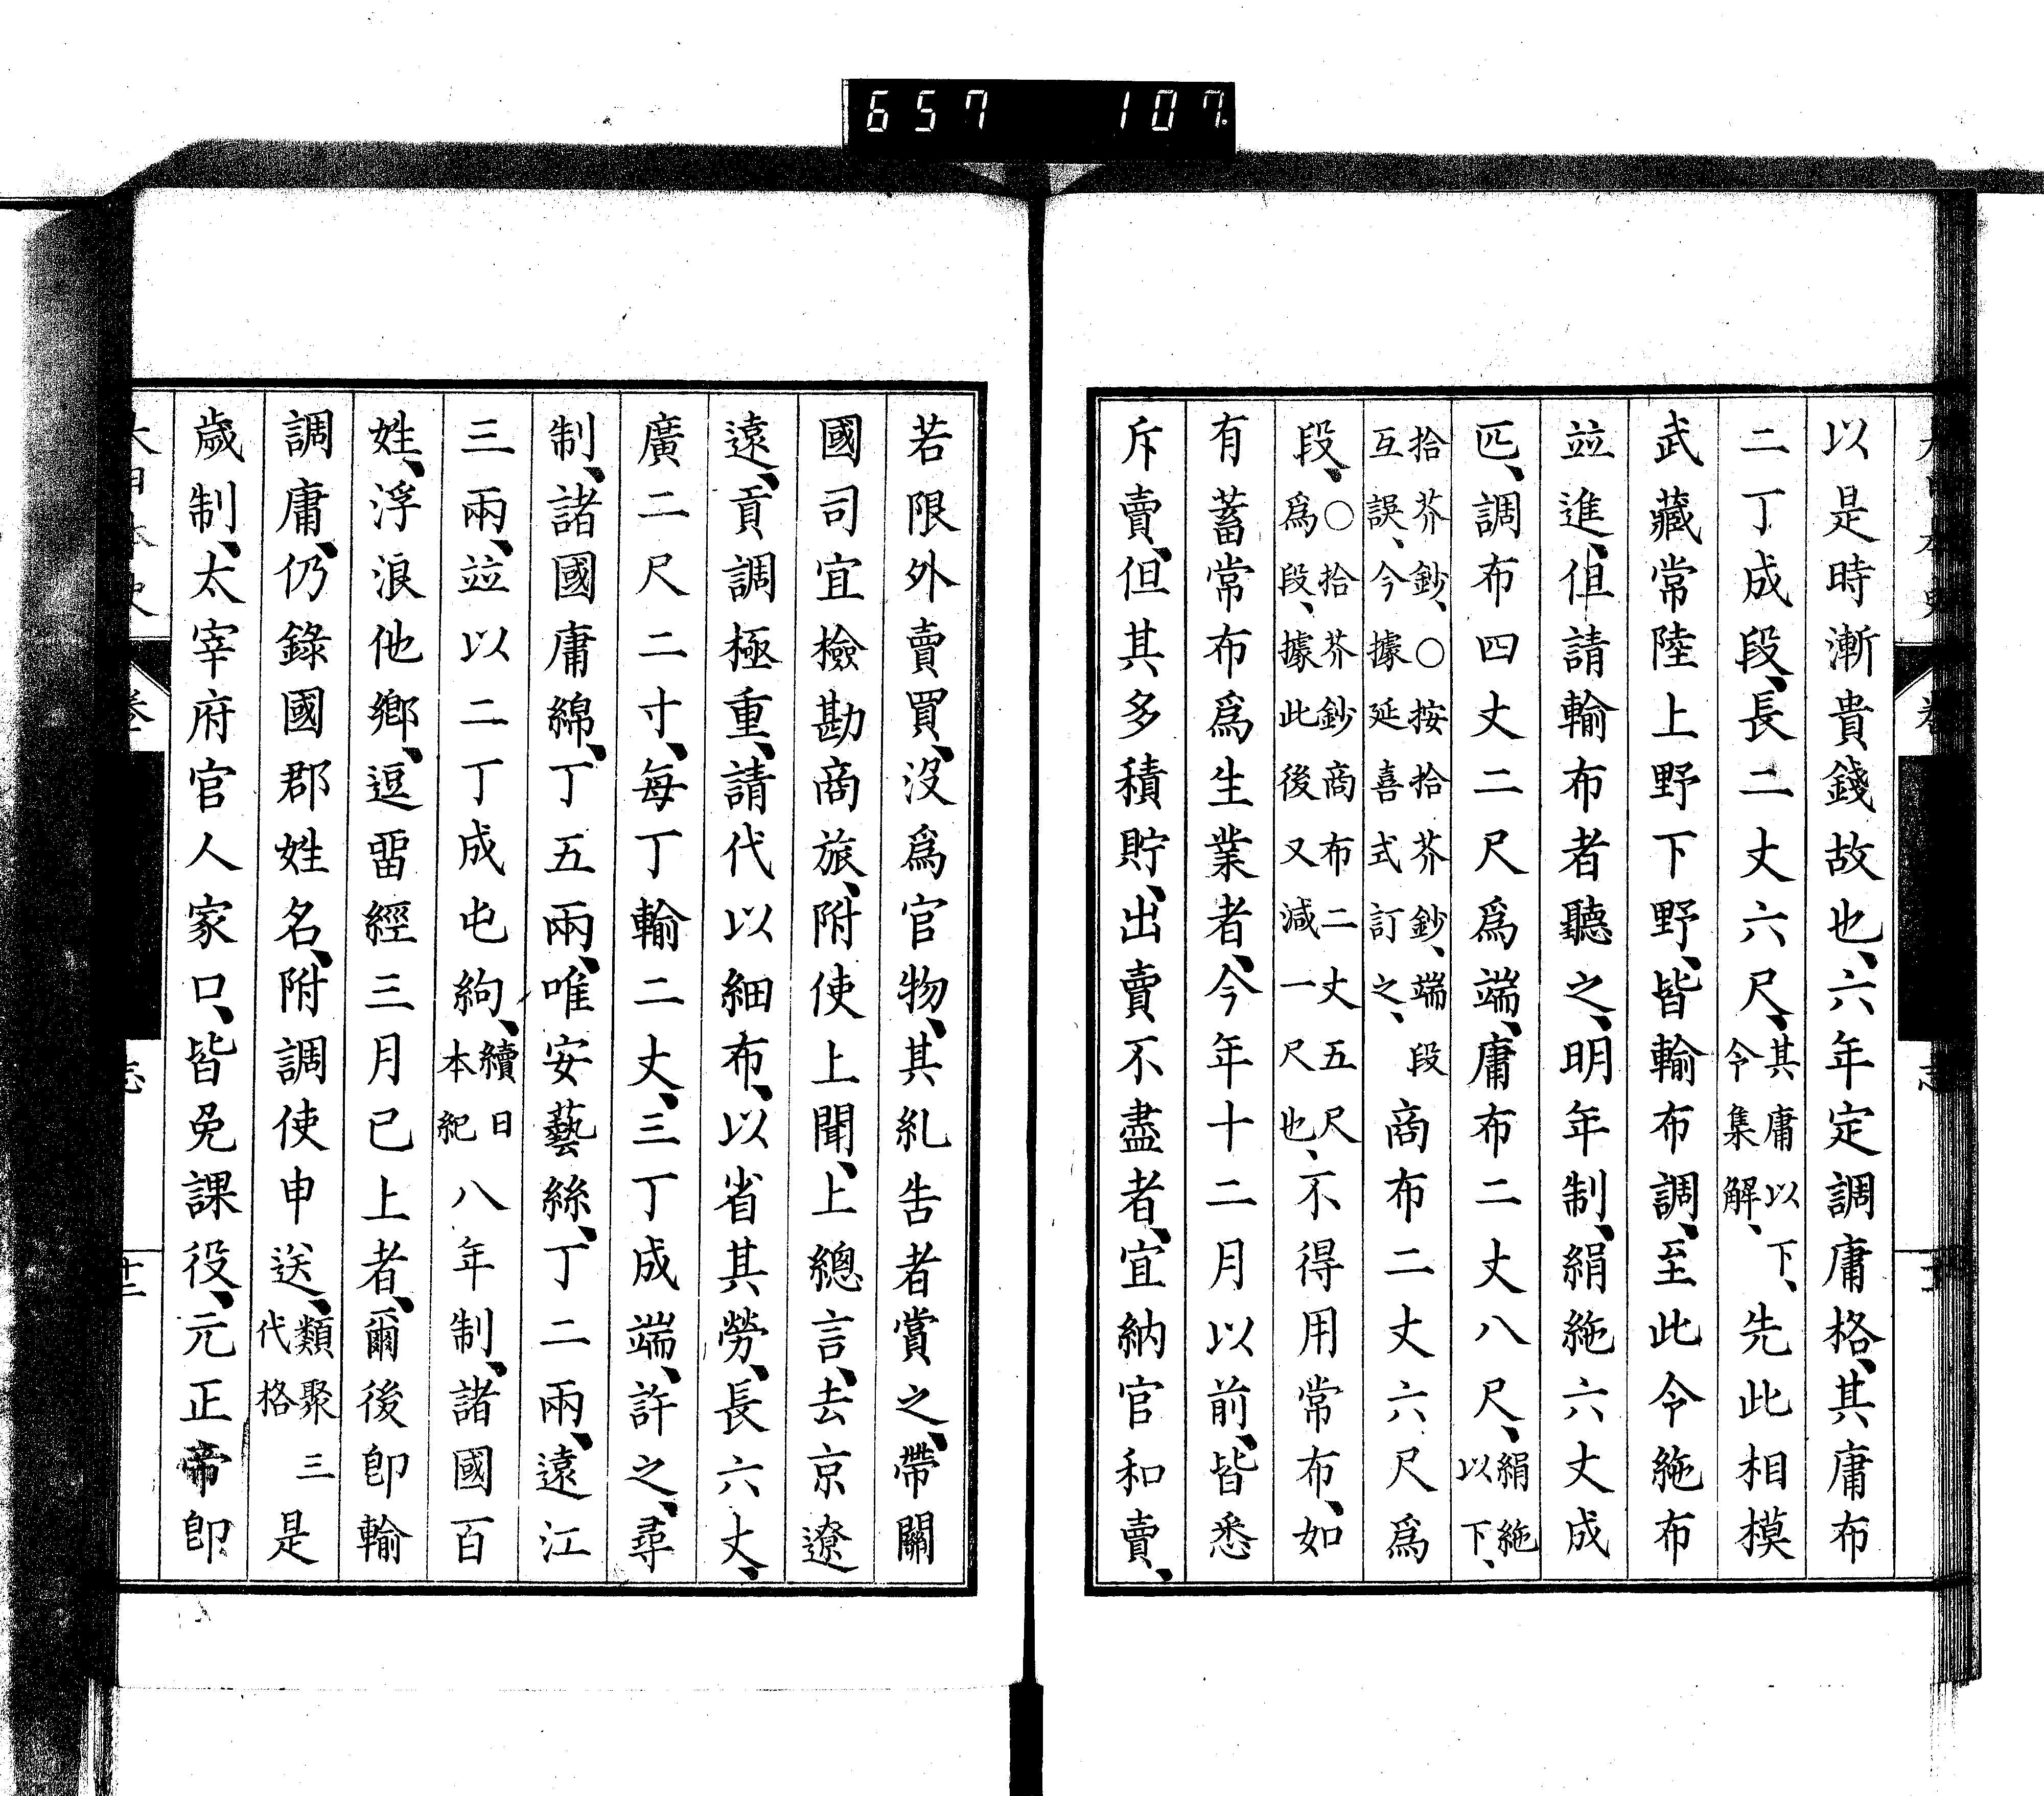 657 107
以是時漸貴錢故也、六年定調庸格、其庸布
二丁成段、長二丈六尺、其庸以下、令集解、先此相模
武藏常陸上野下野、皆輸布調、至此令絁布
竝進、但請輸布者聽之、明年制、絹絁六丈成
匹、調布四丈二尺爲端、庸布二丈八尺、絹絁以下、
拾芥鈔、○按拾芥鈔、端段互誤、今據延喜式訂之、商布二丈六尺爲
段、○拾芥鈔商布二丈五尺爲段、據此後又減一尺也、不得用常布、如
有蓄常布爲生業者、今年十二月以前、皆悉
斥賣、但其多積貯、出賣不盡者、宜納官和賣、
若限外賣買、沒爲官物、其糺告者賞之、帶關
國司宜檢勘商旅、附使上聞、上總言、去京遼
遠、貢調極重、請代以細布、以省其勞、長六丈、
廣二尺二寸、每丁輸二丈、三丁成端、許之、尋
制、諸國庸綿、丁五兩、唯安藝絲、丁二兩、遠江
三兩、竝以二丁成屯絇、續日本紀八年制、諸國百
姓、浮浪他鄉、逗留經三月已上者、爾後卽輸
調庸、仍錄國郡姓名、附調使申送、類聚三代格是
歲制、太宰府官人家口、皆免課役、元正帝卽